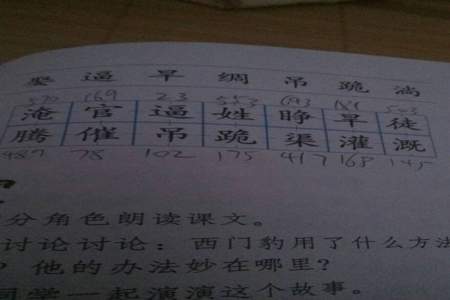 娶 逼 旱 绸 吊 跪 淌
169 23 553
淹 官 逼 姓 睁 旱 徒
腾 催 吊 跪 渠 灌 溉
489 78 102 175 417 168 145
分角色朗读课文。
讨论讨论：西门豹用了什么方法
？他的办法妙在哪里？
同学一起演演这个故事。